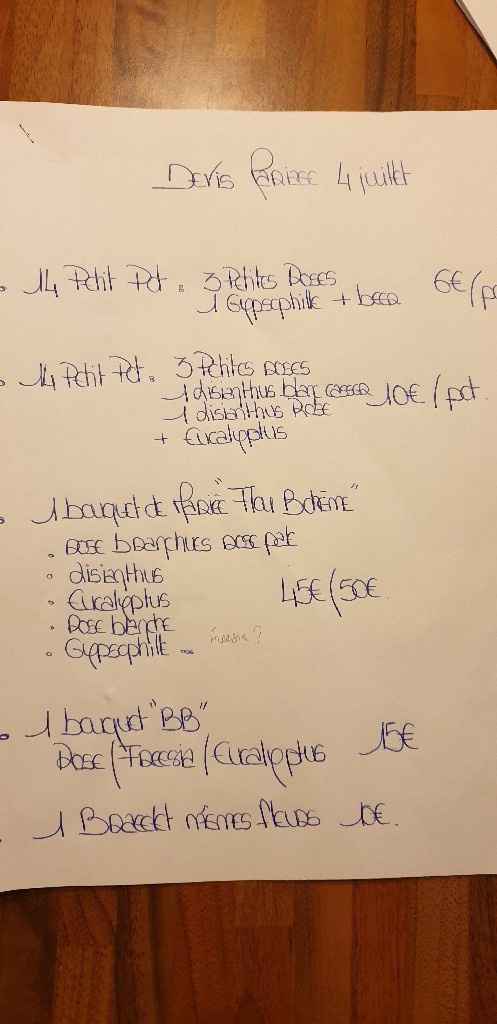 Devis Mariage 4 juillet
14 Petit Pot : 3 Petites Roses 6€/po
1 Gypsophille +
14 Petit Pot : 3 Petites roses
1 lisianthus blanc casser 10€/pot
1 lisianthus Rose
+ Eucalyptus
1 bouquet de Mariée "Flou Bohème"
Rose branchues rose pale
lisianthus
Eucalyptus 45€/50€
Rose blanche
Gypsophille Freesia ?
1 bouquet "BB" 15€
Rose/Freesia/Eucalyptus
1 Bracelet mêmes fleurs 10€.